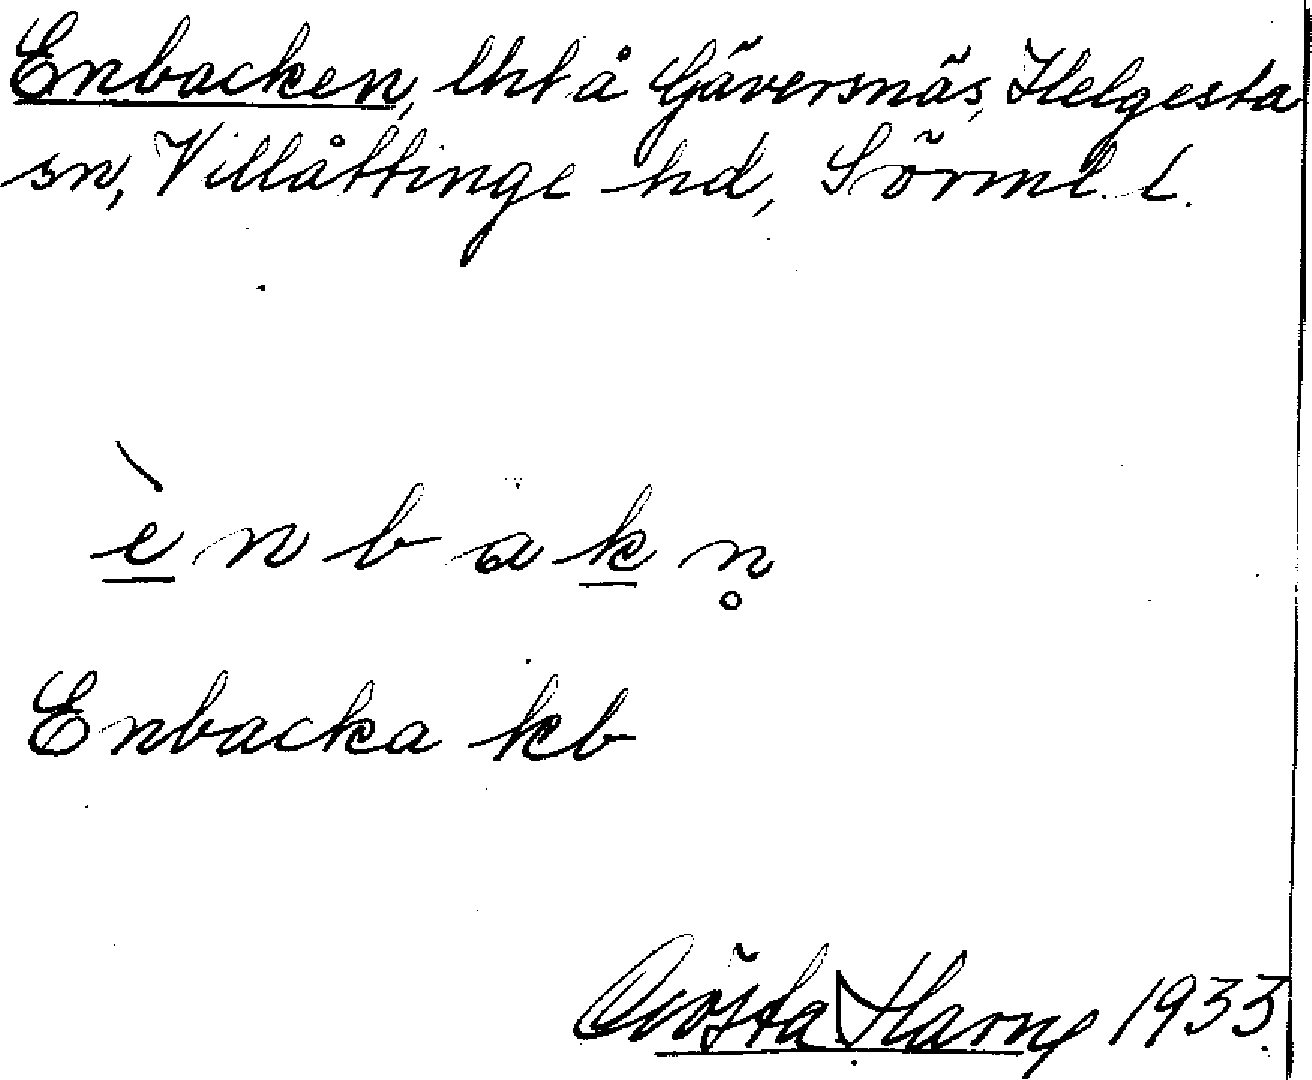 Enbacken, lht å Gäversnäs, Helgesta
sn, Villåttinge hd, Sörml. l.
ènbakn̥
Enbacka kb
Gösta Harny 1933.